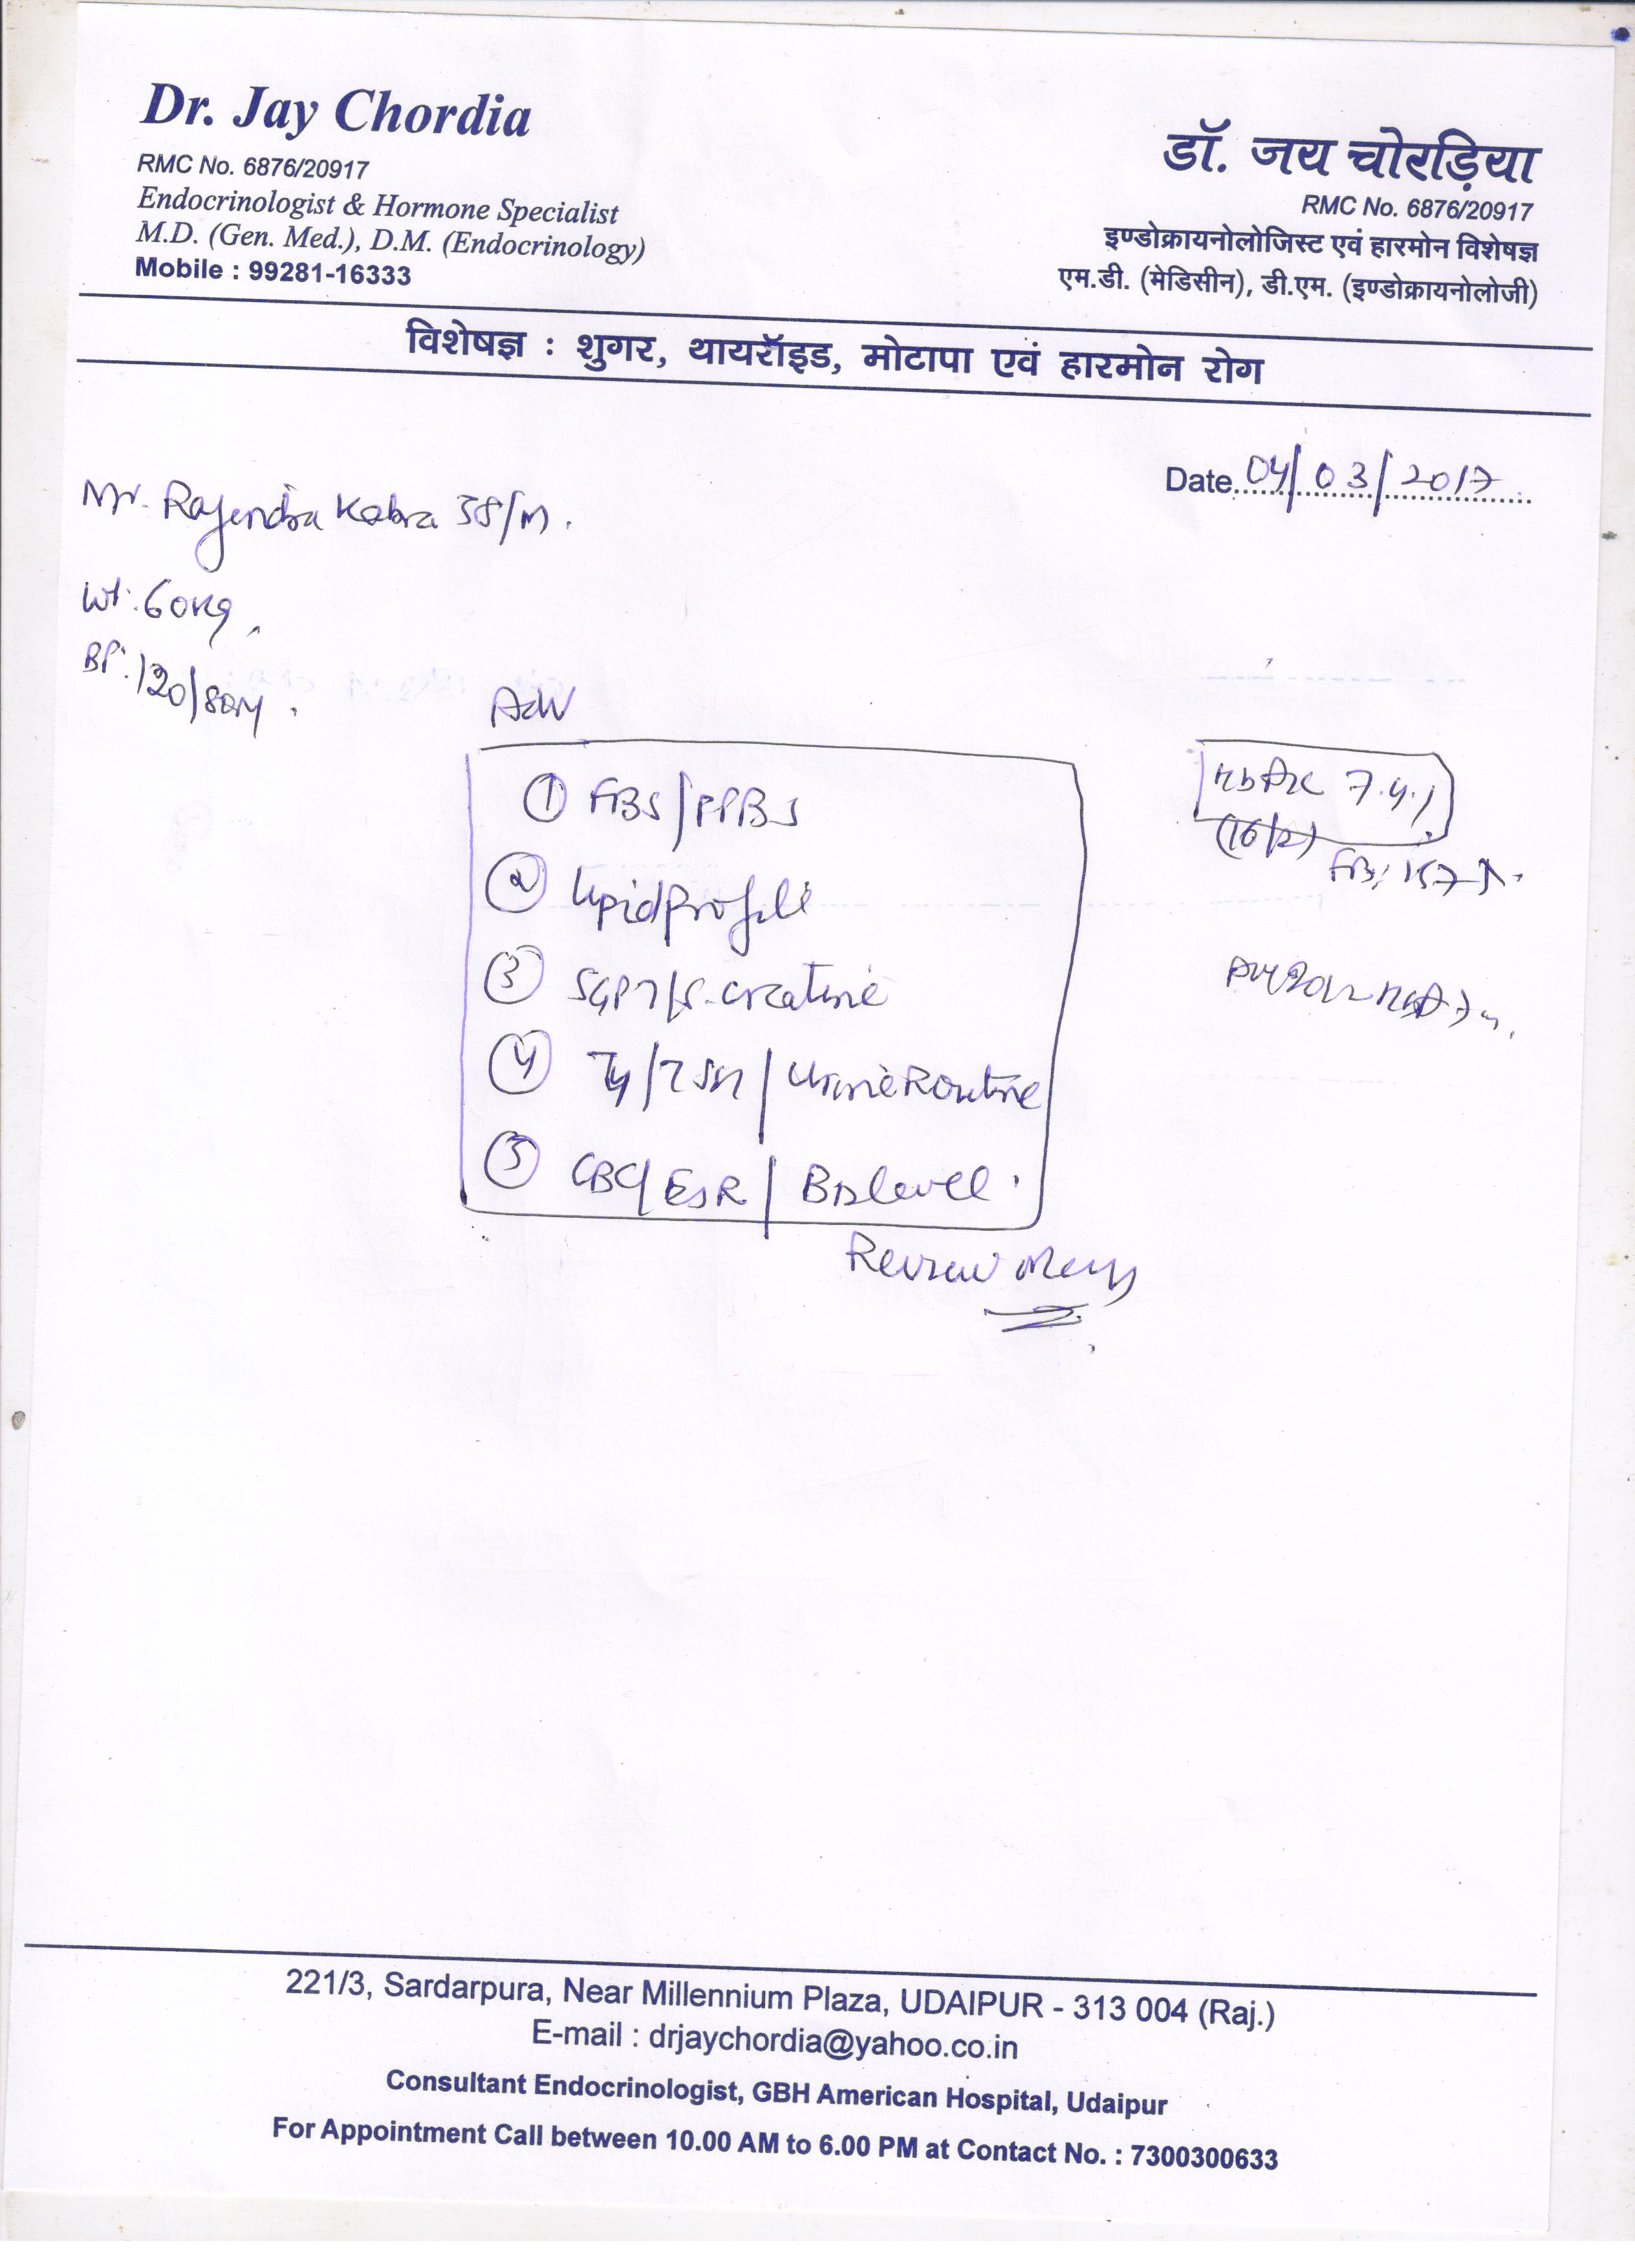 Dr. Jay Chordia
RMC No. 6876/20917
Endocrinologist & Hormone Specialist
M.D. (Gen. Med.), D.M. (Endocrinology)
Mobile : 99281-16333
डॉ. जय चोरड़िया
RMC No. 6876/20917
इण्डोक्रायनोलोजिस्ट एवं हारमोन विशेषज्ञ
एम.डी. (मेडिसीन), डी.एम. (इण्डोक्रायनोलोजी)
विशेषज्ञ : शुगर, थायरॉइड, मोटापा एवं हारमोन रोग
Date 04/03/2017
Mr. Rajendra Kabra /M.
Wt: 60kg
BP: 120/80
Adv
① FBS/PPBS
② Lipid profile
③ SGPT/S. creatine
④ T4/TSH/Urine Routine
⑤ CBC/ESR/ level.
HbA1c 7.4%
FBS: 157
Review
221/3, Sardarpura, Near Millennium Plaza, UDAIPUR - 313 004 (Raj.)
E-mail : drjaychordia@yahoo.co.in
Consultant Endocrinologist, GBH American Hospital, Udaipur
For Appointment Call between 10.00 AM to 6.00 PM at Contact No. : 7300300633